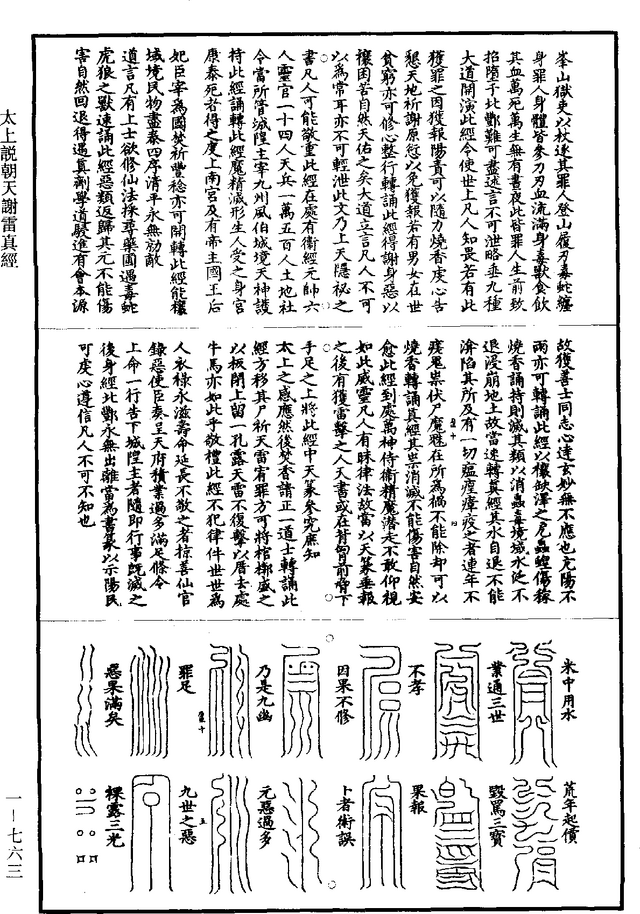 峯山獄吏以杖逐其罪人登山履刃毒蛇纏
身罪人身體皆參刀刃血流滿身毒獸食飲
其血萬死萬生無有晝夜此皆罪人生前致
招墮于北酆難可盡述言不可泄略垂九種
大道開演此經令使世上凡人知畏若有此
獲罪之因獲報陽責可以隨力燒香虔心告
懇天地祈謝原愆以免獲報若有男女在世
貧窮亦可修心整行轉誦此經得謝身惡以
禳困苦自然天佑之矣大道立言凡人不可
以為常耳亦不可輕泄此文乃上天隱祕之
書凡人可能敬重此經在處有衛經元帥六
人靈官一十四人天兵一萬五百人土地社
令當所管城隍主宰九州風伯城境天神護
持此經誦轉此經魔精滅形生人受之身宮
康泰死者得之度上南宮及有帝主國王后
妃臣宰為國焚祈豐稔亦可開轉此經能禳
域境民物盡泰四序清平永無劾敵
道言凡有上士欲修仙法採尋藥圃遇毒蛇
虎狼之獸速誦此經惡類返歸其元不能傷
害自然回退得遇真劑學道駿進有會本源
故獲善士同志心達玄妙無不應也亢陽不
雨亦可轉誦此經以禳缺澤之厄蟲蝗傷稼
燒香誦持則滅其類以消蟲毒境域水泛不
退浸崩地土故當速轉真經其水自退不能
渰陷其所及有一切瘟瘽瘴疫之者連年不
痊鬼祟伏尸魔魅在所為禍不能除却可以
燒香轉誦真經其祟消滅不能傷害自然安
愈此經到處萬神侍衛精魔潜走不敢仰視
如此威靈凡人有昧律法故當以天篆垂報
之後有獲雷擊之人天書或在背胷前脅下
手足之上將此經中天篆參究庶知
太上之感應然後焚香請正一道士轉誦此
經方移其尸祈天雷宥罪方可將棺槨盛之
以板閉上留一孔露天雷不復擊以厝去處
牛馬亦如此乎敬禮此經不犯律件世世為
人衣祿永滋壽命延長不敬之者掠善仙官
錄惡使臣奏呈天府積業過多滿足條令
上命一行告下城隍主者隨即行事既滅之
後身經北酆永無出離當為書篆以示陽民
可虔心遵信凡人不可不知也
米中用水
荒年起債
業通三世
毀罵三寶
不孝
果報
因果不修
卜者術誤
乃是九幽
元惡過多
罪足
九世之惡
惡果滿矣
裸露三光
太上說朝天謝雷真經
一—七六三